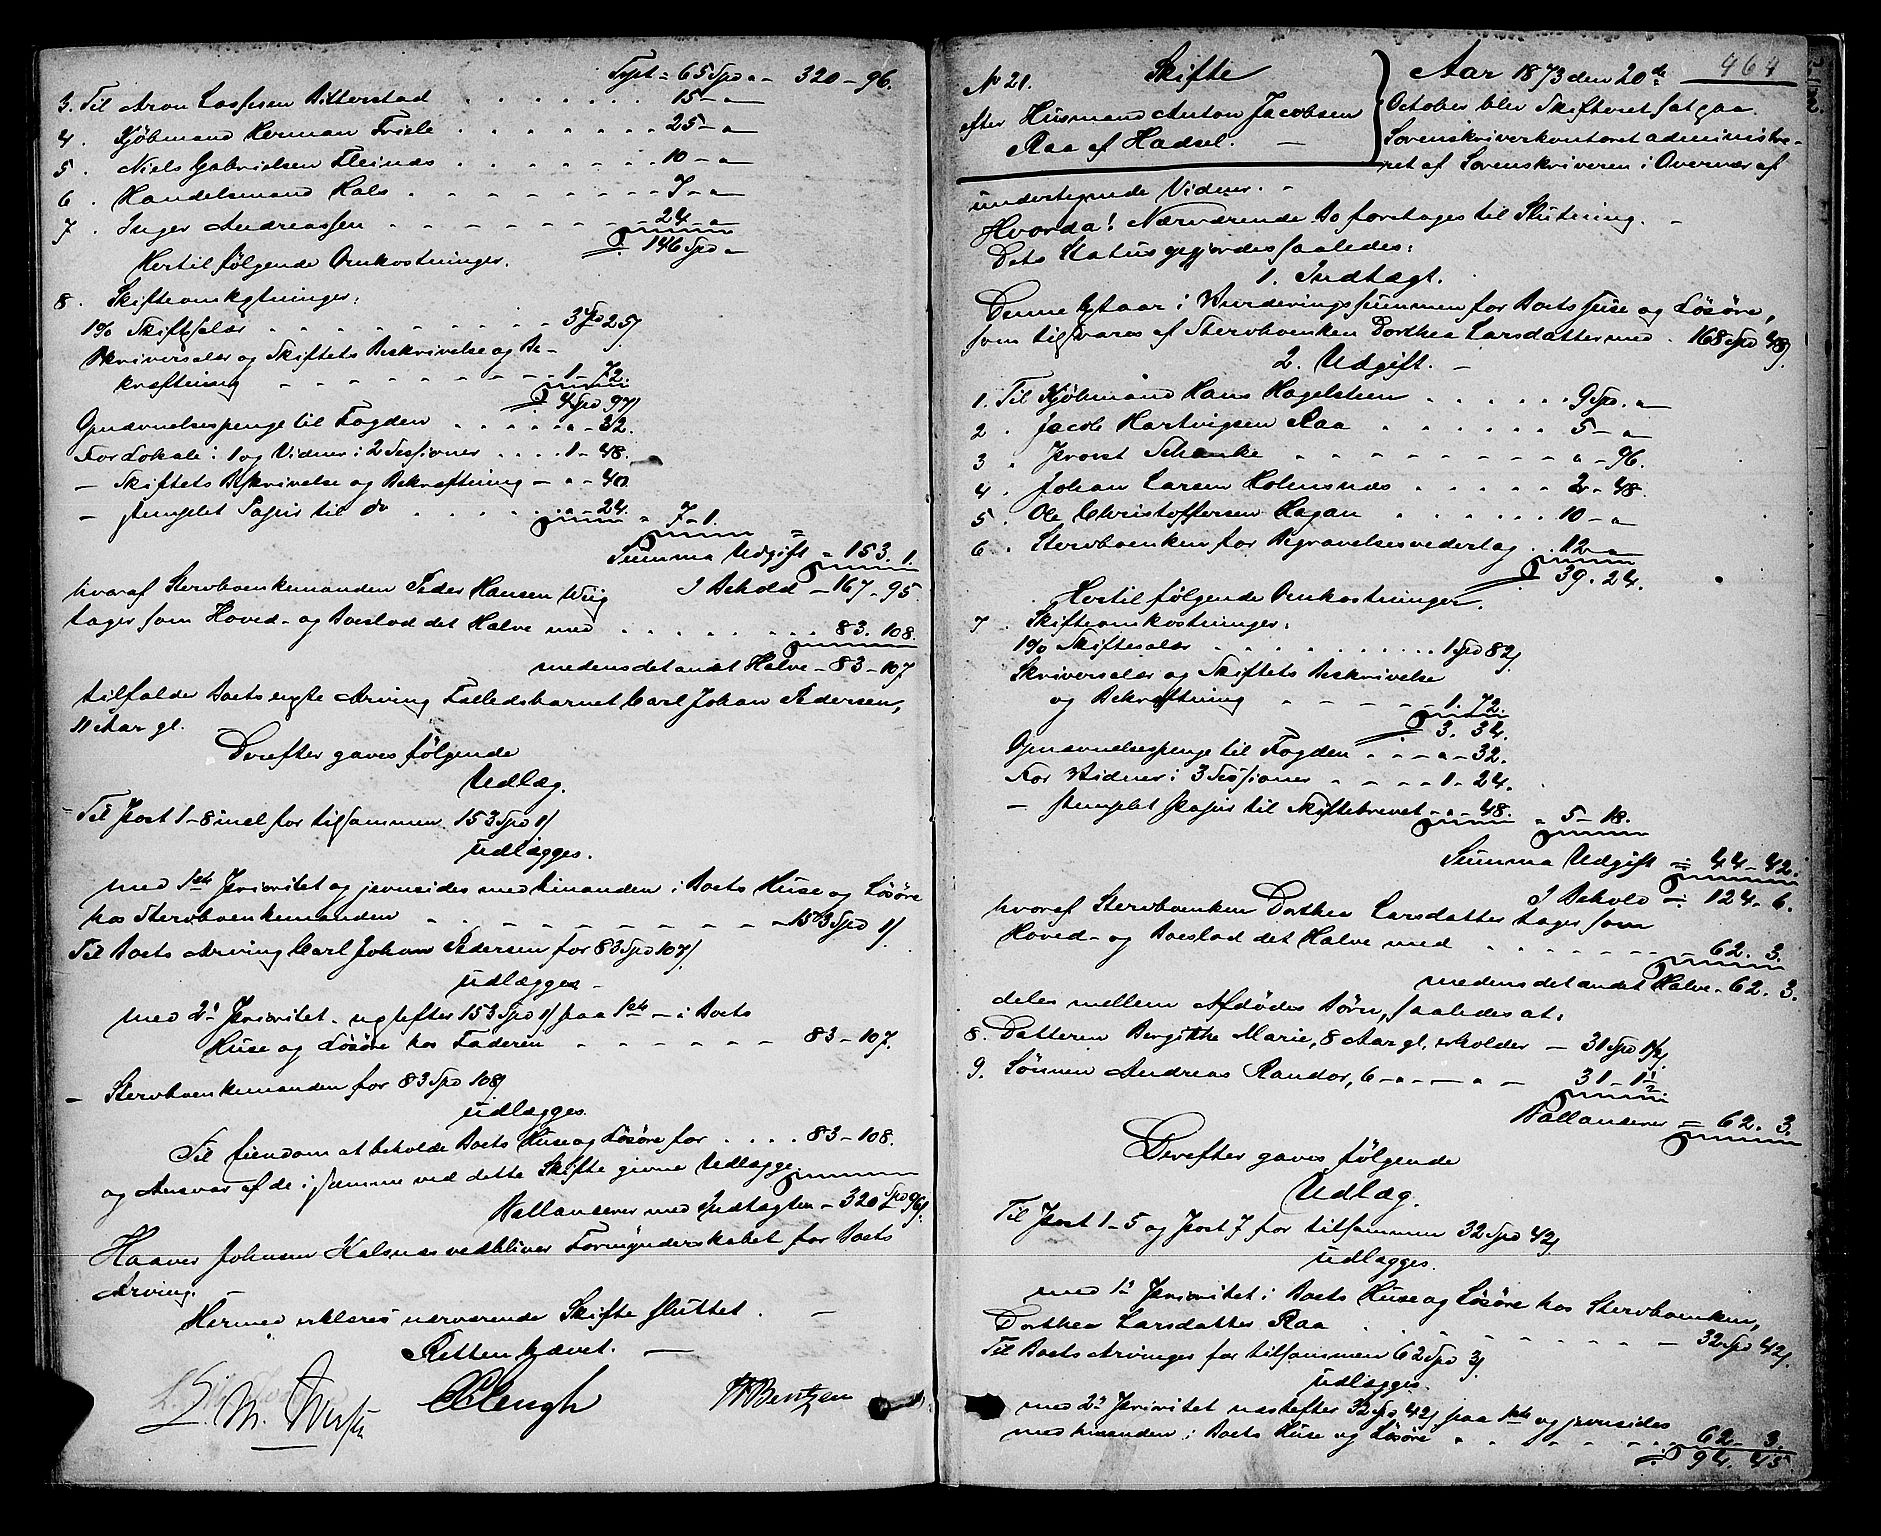 Trspt = 65 Spd " - 320 - 96.
3. Til Aron Lassesen Bitterstad . . . . . . . 15 - "
4 . Kjøbmand Herman Friele . . . . . . . 25 - "
5 . Niels Gabrielsen Fleinæs . . . . . . 10 - "
6 . Handelsmand Hals . . . . . . . 7 - "
7 . Inger Andreassen . . . . . . . 24 - "
146 Spd "
Hertil følgende Omkostninger.
8 . Skifteomkostninger:
1% Skiftesalær . . . . . . . . 3 Spd 25 s
Skriversalær og Skiftets Beskrivelse og Be-
kræftning . . . . . . . . . 1 - 72.
4 Spd 97 s
Opnævnelsespenge til Fogden . . . . . . " - 32.
For Lokale i 1 og Vidner i 2 Sessioner . . . . 1 - 48.
— Skiftets Beskrivelse og Bekræftning — " - 40
— stemplet Papir til do . . . . . . " - 24. " 7 - 1.
Summa Udgift = 153. 1.
I Behold - 167 - 95
hvoraf Stervboenkemanden Peder Hansen Wiig
tager som Hoved- og Boeslod det Halve med . . . . . . . 83. 108.
medens det andet Halve - 83 - 107
tilfalder Boets eneste Arving Fælledsbarnet Carl Johan Pedersen,
11 Aar gl.
Derefter gaves følgende
Udlæg.
- Til Post 1 - 8 incl for tilsammen 153 Spd 1 s
udlægges.
med 1ste Prioritet og jevnsides med hinanden i Boets Huse og Løsøre
hos Stervboenkemanden . . . . . . . . . 153 Spd 1 s
Til Boets Arving Carl Johan Pedersen for 83 Spd 107 s
udlægges -
med 2' Prioritet - næstefter 153 Spd 1 s paa 1ste - i Boets
Huse og Løsøre hos Faderen . . . . . . 83 - 107.
- Stervboenkemanden for 83 Spd 108 s
udlægges.
Til Eiendom at beholde Boets Huse og Løsøre for . . . . 83 - 108.
og Ansvar af de i samme ved dette Skifte givne Udlægge.
Ballancerer med Indtægten - 320 Spd 96 s.
Haaver Johnsen Kalsnæs vedbliver Formynderskabet for Boets
Arving.
Hermed erklæres nærværende Skifte sluttet. —
Retten hævet. —
464
No 21. Skifte
efter Husmand Anton Jacobsen
Raa af Hadsel. —
Aar 1873 den 20de
October blev Skifteret sat paa
Sorenskriverkontoret administre-
ret af Sorenskriveren i Overvær af
undertegnede Vidner. -
Hvorda! Nærværende Bo foretages til Slutning. -
Dets Status opgjordes saaledes:
1. Indtægt.
Denne bestaar i Vurderingssummen for Boets Huse og Løsøre,
som tilsvares af Stervboenken Dorthea Larsdatter med . 168 Spd 48 s.
2. Udgift. -
1. Til Kjøbmand Hans Hagelsteen . . . . . . 9 Spd. "
2 . Jacob Hartvigsen Raa . . . . . . 5 - "
3 . Provst Schanke . . . . . . . . . " - 96.
4 . Johan Larsen Holmsnæs . . . . . 2 - 48.
5 . Ole Christoffersen Hagan . . . . . . 10 - "
6 . Stervboenken for Begravelsesvederlag . . 12 - "
39. 24.
Hertil følgende Omkostninger.
7 . Skifteomkostninger:
1% Skiftesalær . . . . . . . . . . 1 Spd 82 s
Skriversalær og Skiftets Beskrivelse
og Bekræftning . . . . . . 1. 72.
3. 34.
Opnævnelsespenge til Fogden . . . " - 32.
For Vidner i 3 Sessioner . . . . 1 - 24.
— stemplet Papir til Skiftebrevet - " - 48. " 5 - 18.
Summa Udgift = 44 - 42.
I Behold = 124 - 6.
hvoraf Stervboenken Dorthea Larsdatter tager som
Hoved- og Boeslod det Halve med . . . . . . . 62. 3.
medens det andet Halve - 62. 3.
deles mellem Afdødes Børn, saaledes at:
8. Datteren Bergithe Marie, 8 Aar gl. erholder — 31 Spd 1½ s
9. Sønnen Andreas Randor, 6 - " - — " — 31 - 1½
Ballancerer = 62. 3.
Derefter gaves følgende
Udlæg.
Til Post 1 - 5 og Post 7 for tilsammen 32 Spd 42 s
udlægges.
med 1' Prioritet i Boets Huse og Løsøre hos Stervboenken,
Dorthea Larsdatter Raa . . . . . . . . . . 32 Spd 42 s.
Til Boets Arvinger for tilsammen 62 Spd 3 s
udlægges.
med 2' Prioritet næstefter 32 Spd 42 s paa 1ste og jevnsides
med hinanden i Boets Huse og Løsøre . . . . . . . 62. 3.
94. 45.